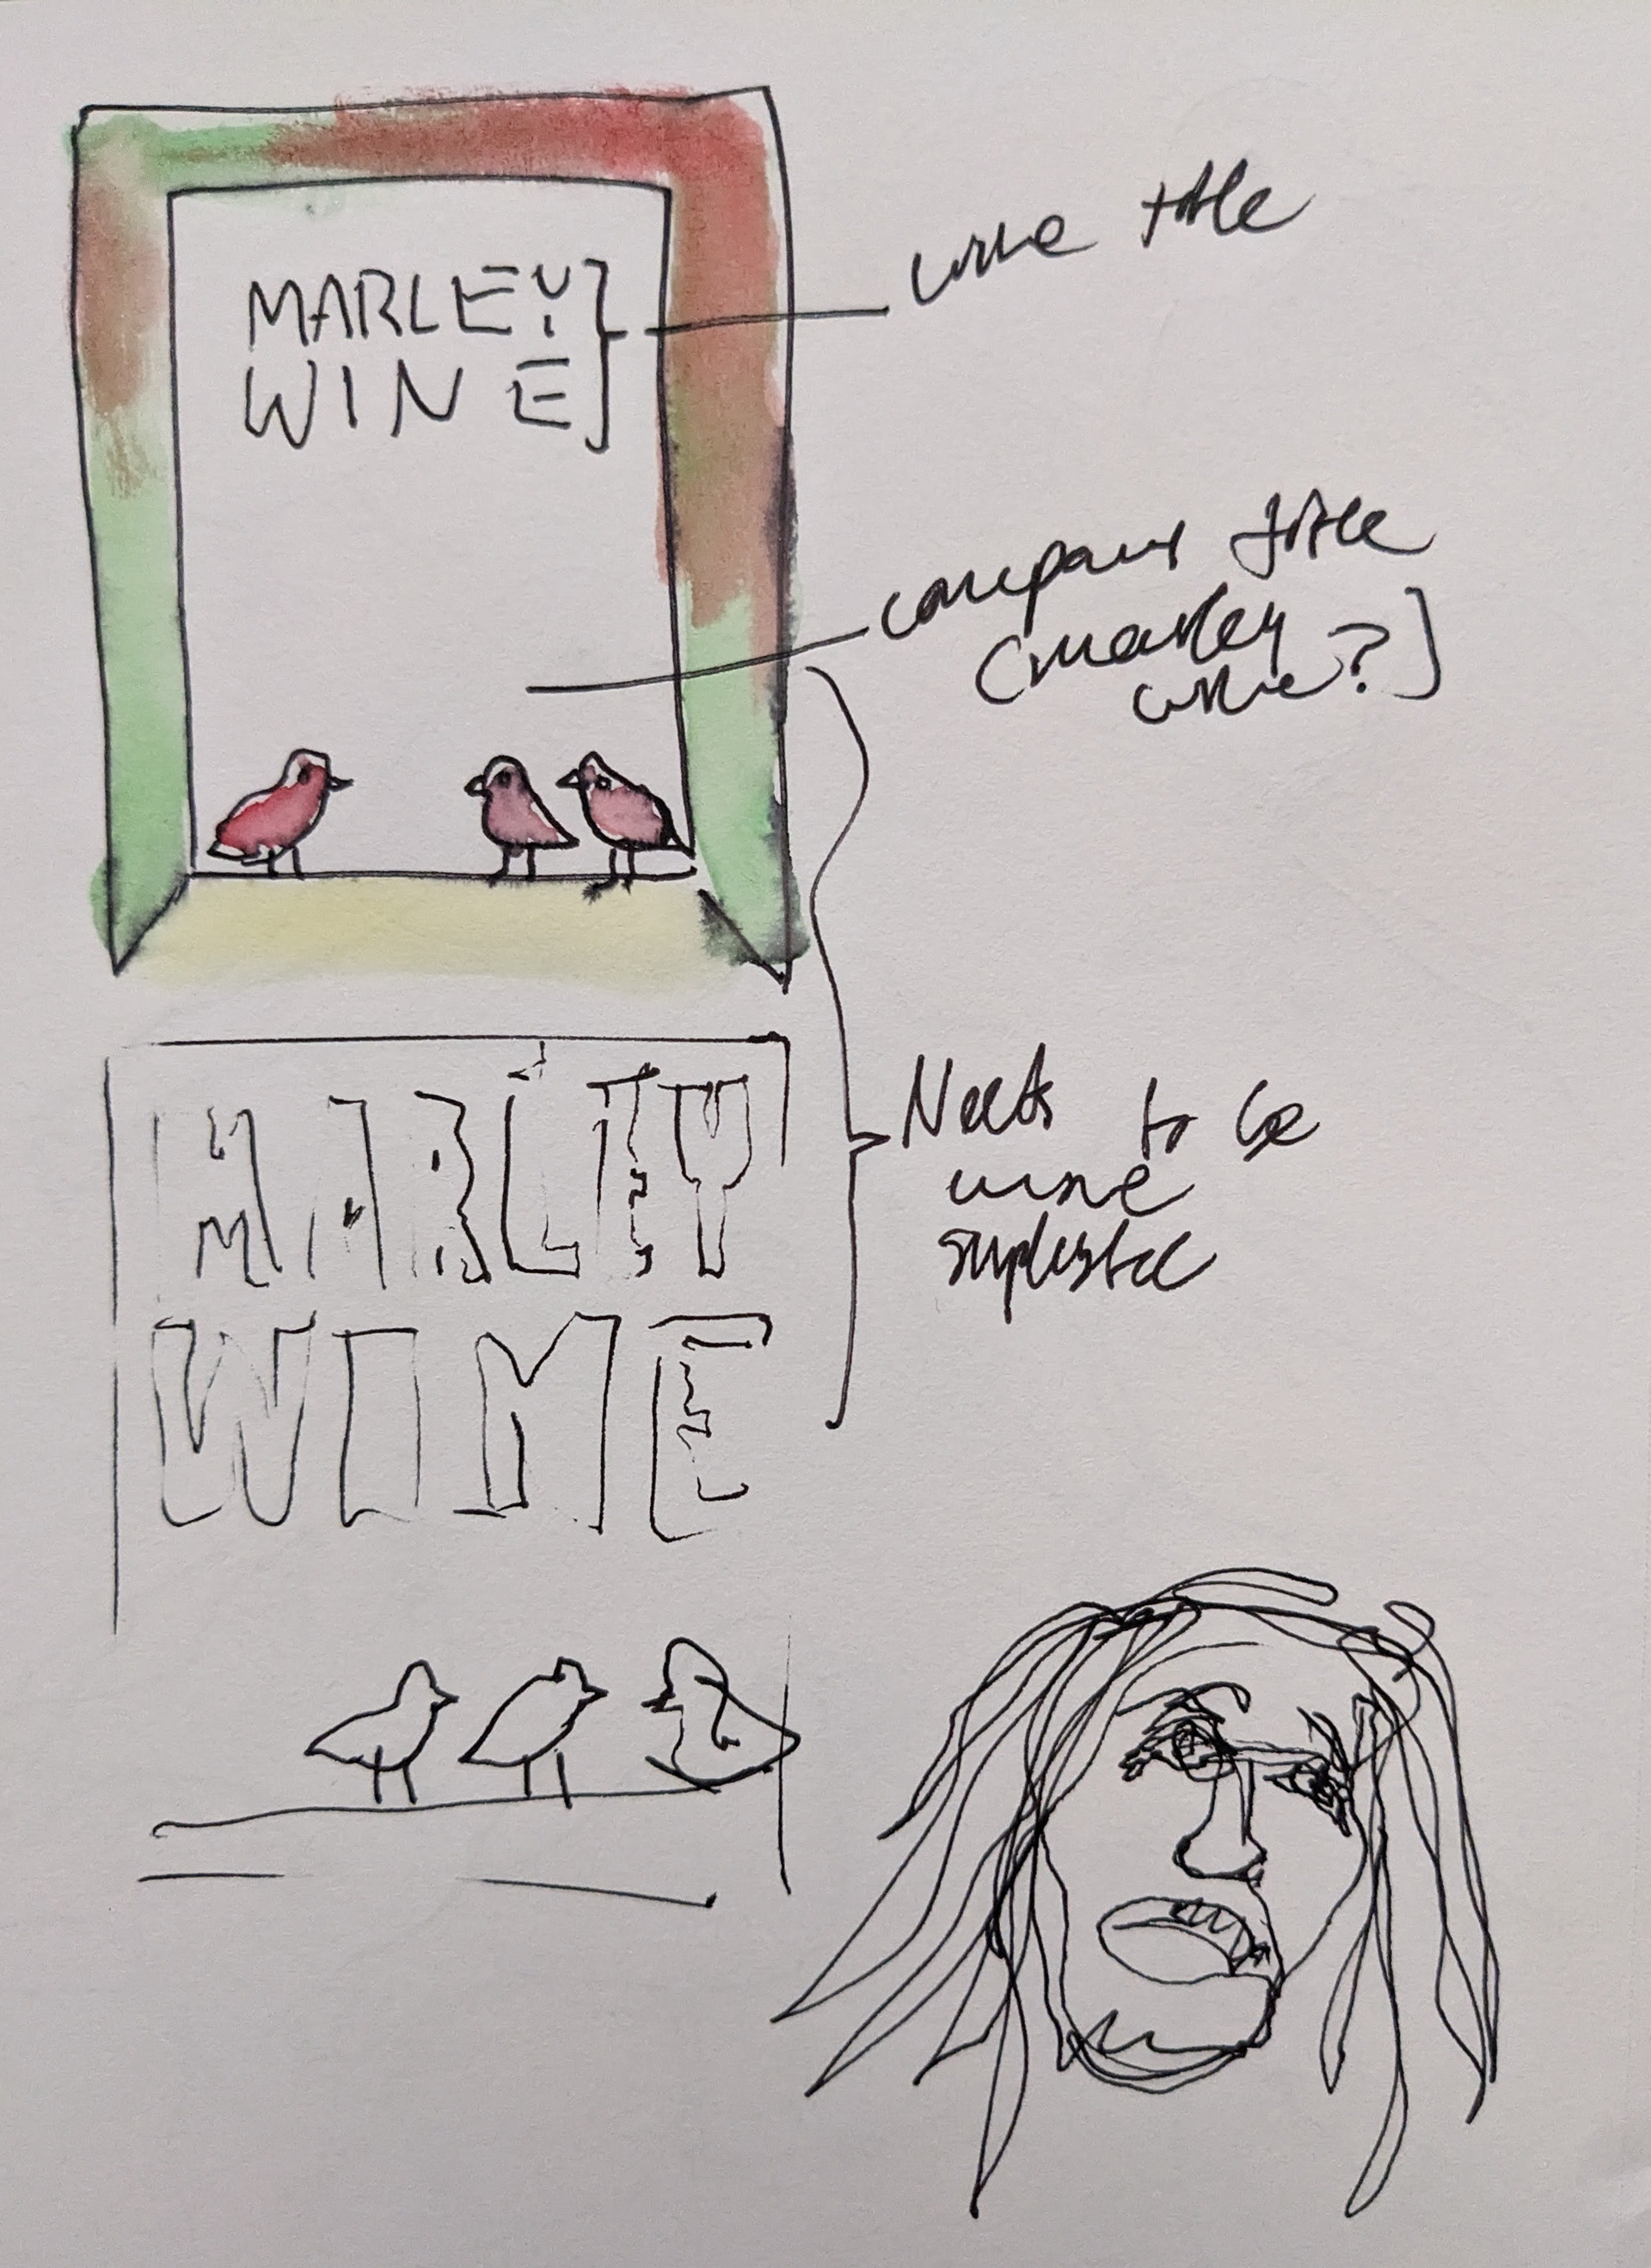 MARLEY
WINE
wine title
company title
(marley
wine?]
MARLEY
WINE
Needs to be
wine